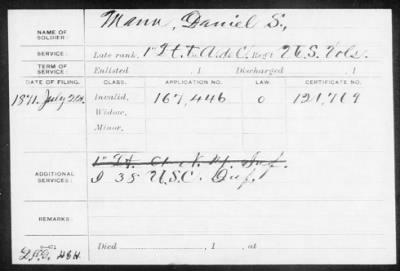 NAME OF SOLDIER: Mann, Daniel S.,
SERVICE: Late rank, 1st Lt. & A.d.C. Regt U.S. Vols.
TERM OF SERVICE: Enlisted 1 Discharged 1
DATE OF FILING. CLASS. APPLICATION NO. LAW. CERTIFICATE NO.
1871. July 26 Invalid, 167,446 0 121,719
Widow,
Minor,
ADDITIONAL SERVICES:
I 35 U.S.C. Inf.
REMARKS:
Died , 1 , at